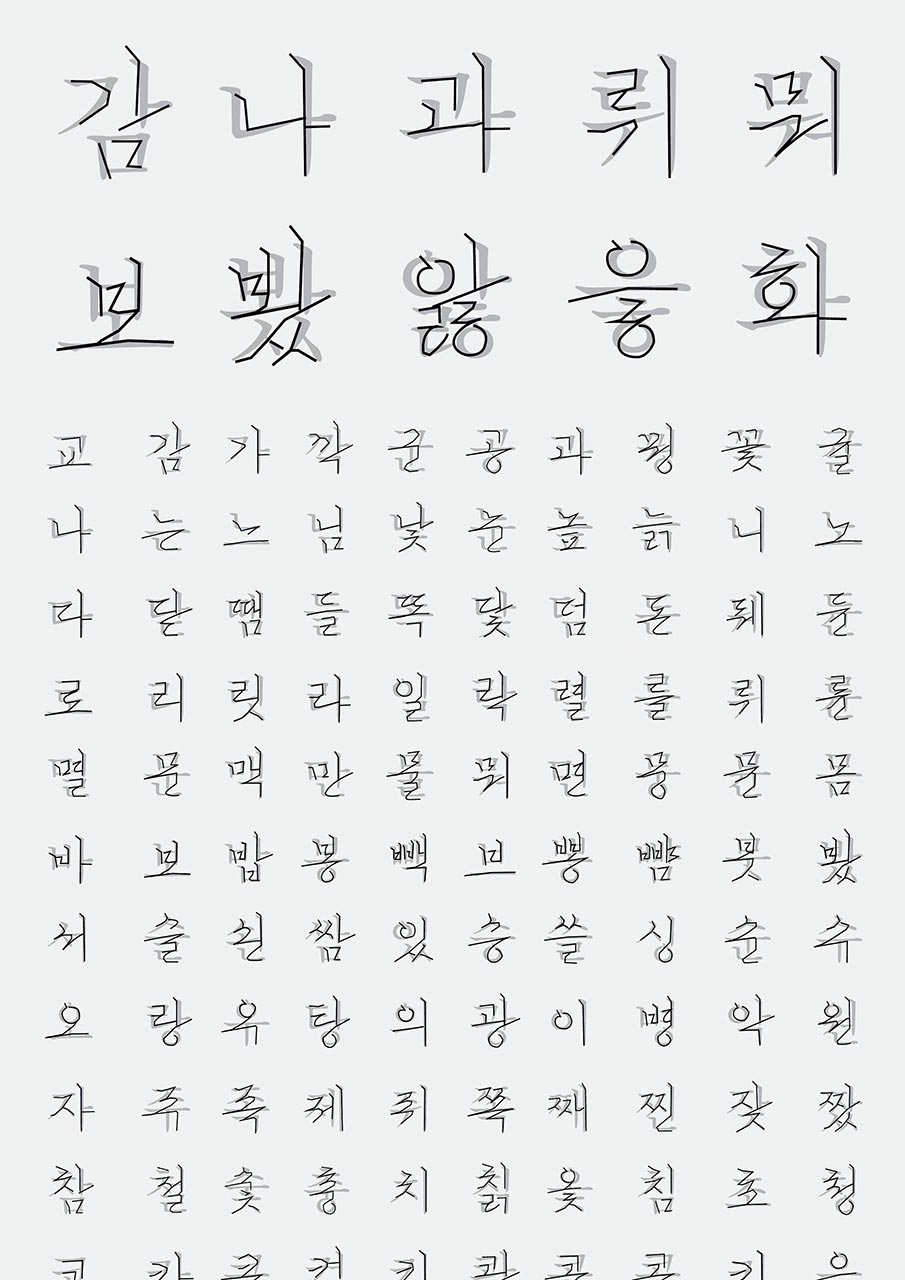 감 나 과 뤼 뮈
보 봤 앓 융 화
교 감 가 깍 군 공 과 꿩 꽃 굴
나 는 느 님 낯 눈 높 늙 니 노
다 닫 땜 들 똑 닻 덤 돈 뒈 둔
로 리 릿 라 일 락 렬 를 뤼 룬
멸 문 맥 만 물 뭐 면 몽 문 몸
바 보 밥 봉 빽 브 뽕 뺨 못 봤
서 술 쉰 쌈 있 승 쓸 싱 순 수
오 랑 유 탕 의 광 이 병 악 원
자 주 족 제 쥐 쪽 째 찐 잦 짰
참 철 숯 충 치 칡 옻 침 초 청